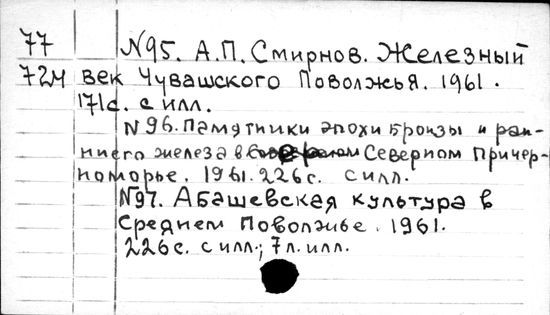 77 N95. А.П. Смирнов. Железный
724 век Чувашского Поволжья. 1961.
171с. с илл.
N96. Памятники эпохи бронзы и ран-
ниего железа в Северном Причер-
номорье. 1961. 226с. с илл.
N97. Абашевская культура в
Среднем Поволжье. 1961.
226с. с илл.; 7л. илл.